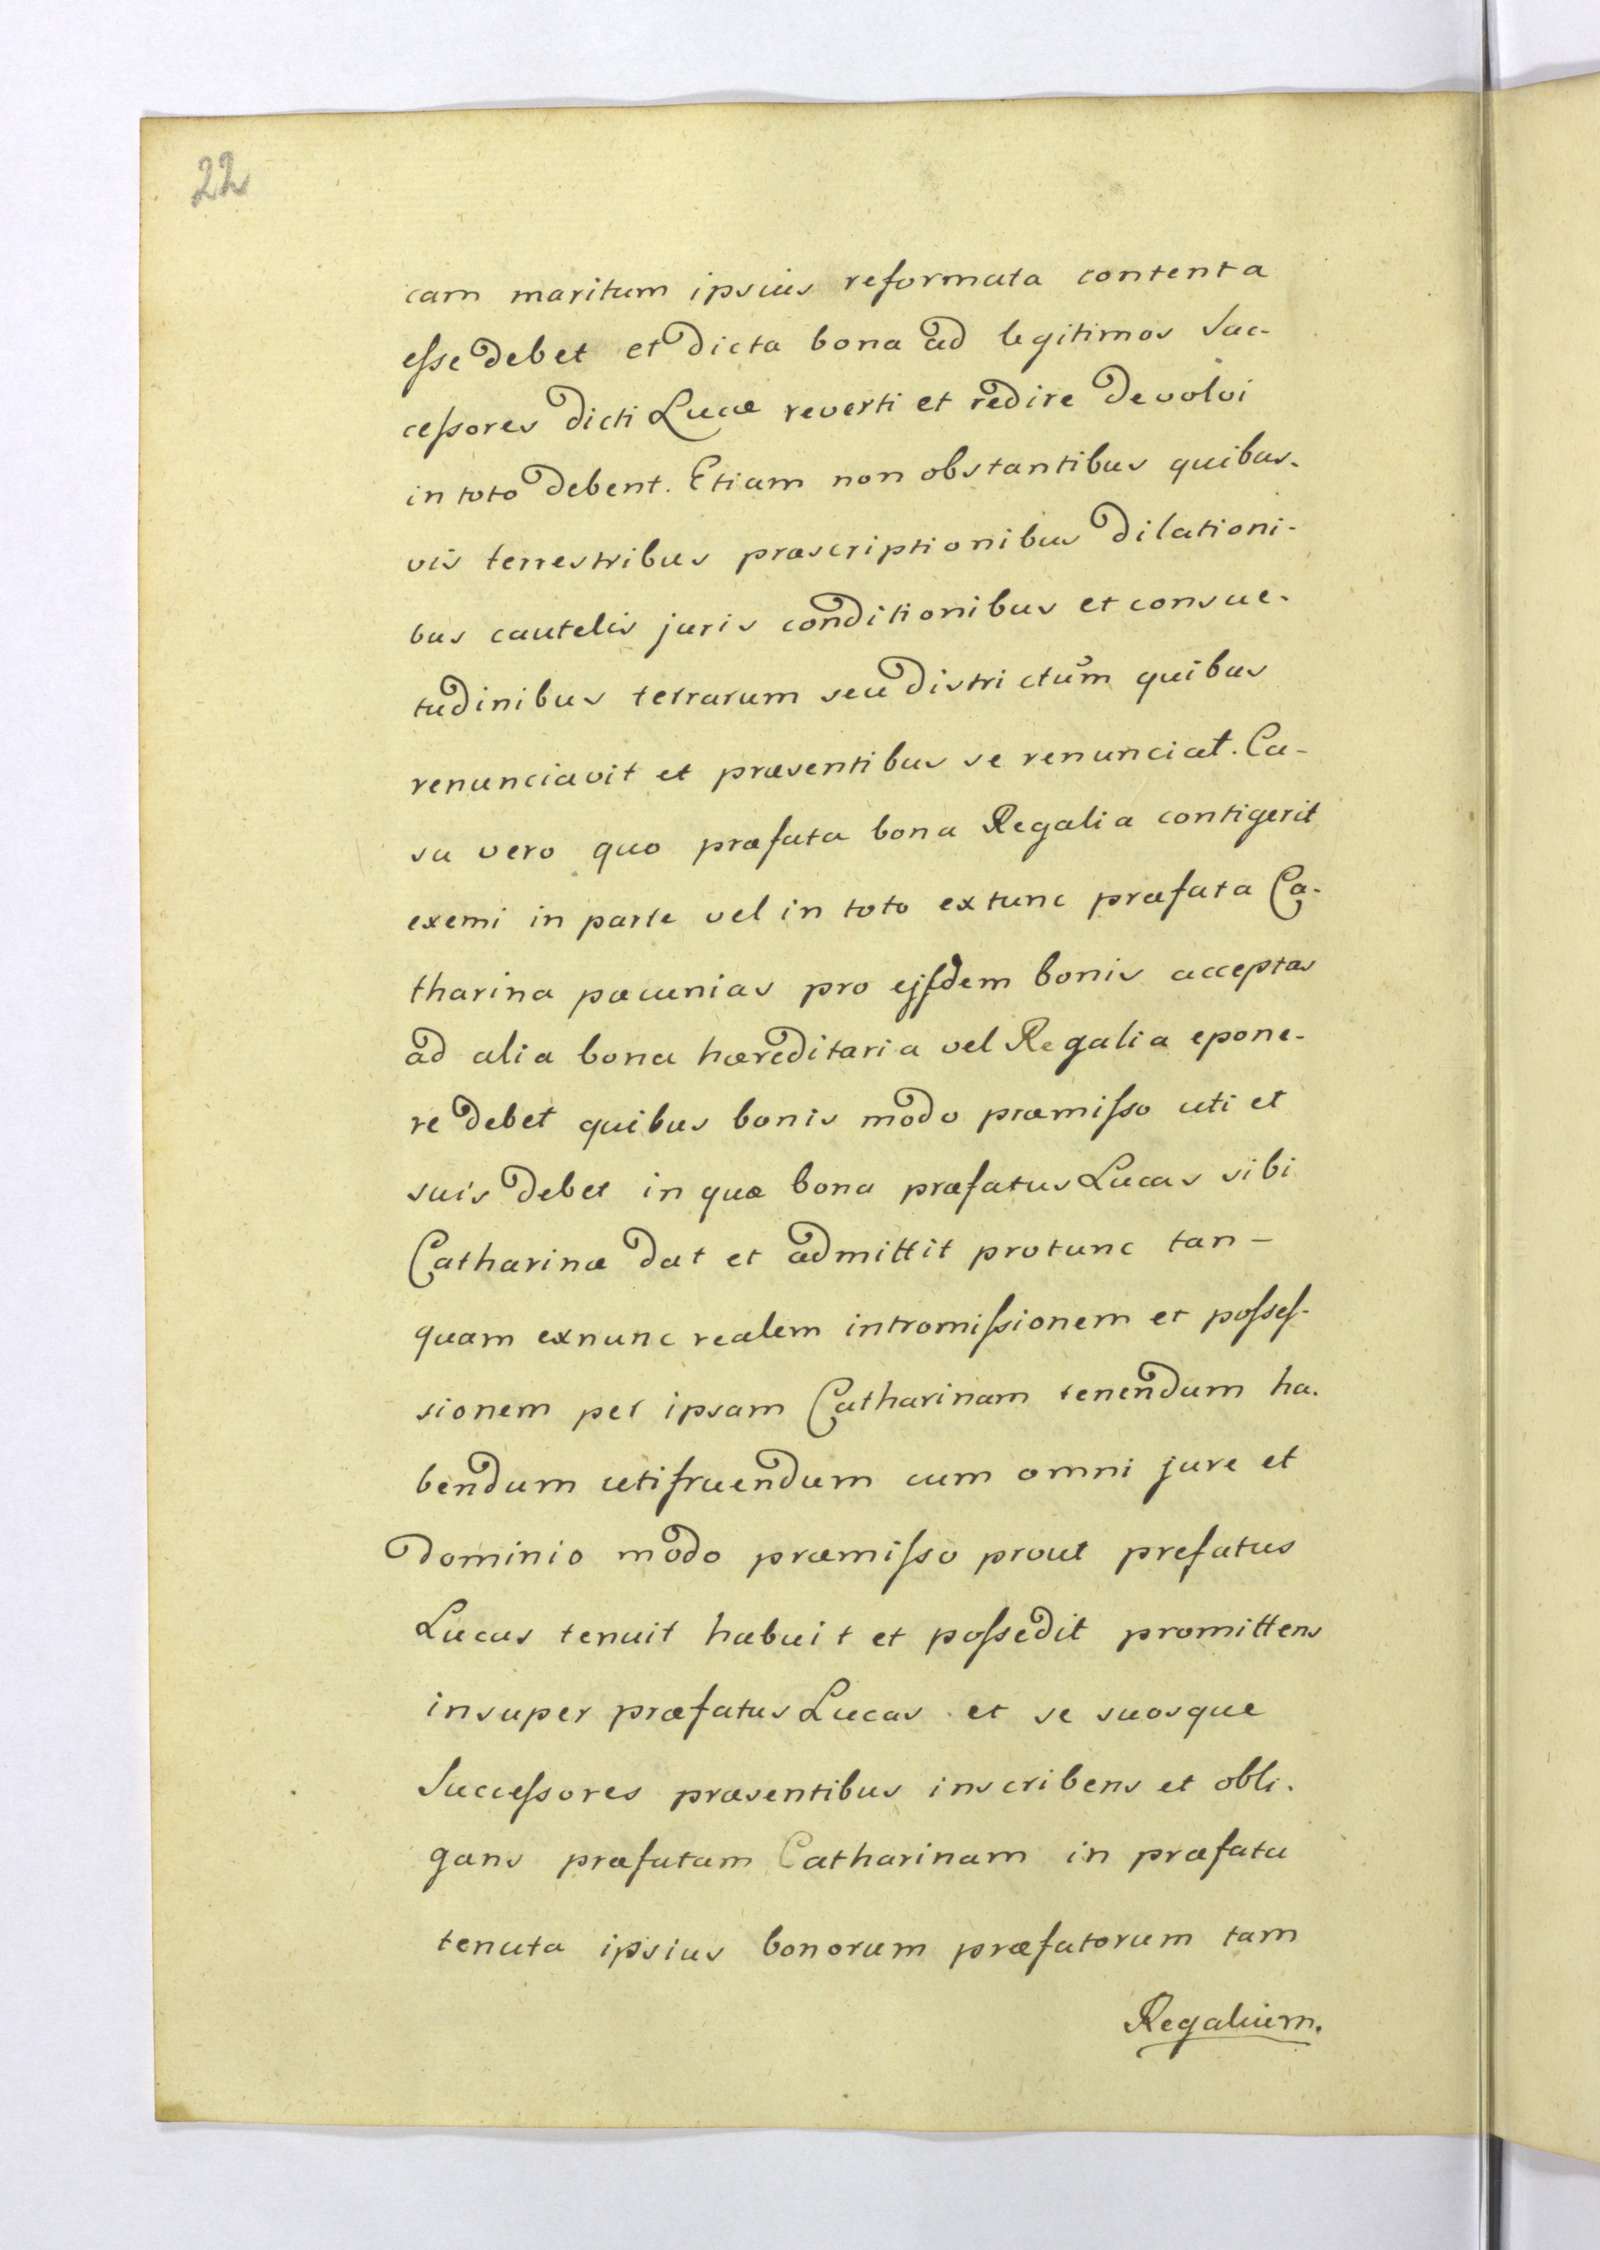 22
cam maritum ipsius reformata contenta
esse debet et dicta bona ad legitimos Suc-
cessores dicti Lucæ reverti et redire devolvi
in toto debent. Etiam non obstantibus quibus-
vis terrestribus præscriptionibus dilationi-
bus cautelis juris conditionibus et consue-
tudinibus terrarum seu districtum quibus
renunciavit et præsentibus se renunciat. Ca-
su vero quo præfata bona Regalia contigerit
exemi in parte vel in toto extunc præfata Ca-
tharina pæcunias pro ejsdem bonis acceptas
ad alia bona hæreditaria vel Regalia epone-
re debet quibus bonis modo præmisso uti et
suis debet in quæ bona præfatus Lucas sibi
Catharinæ dat et admittit protunc tan-
quam exnunc realem intromissionem et posses-
sionem per ipsam Catharinam tenendum ha-
bendum utifruendum cum omni jure et
dominio modo præmisso prout prefatus
Lucas tenuit habuit et possedit promittens
insuper præfatus Lucas et se suosque
Successores præsentibus inscribens et obli-
gans præfatam Catharinam in præfata
tenuta ipsius bonorum præfatorum tam
Regalium.